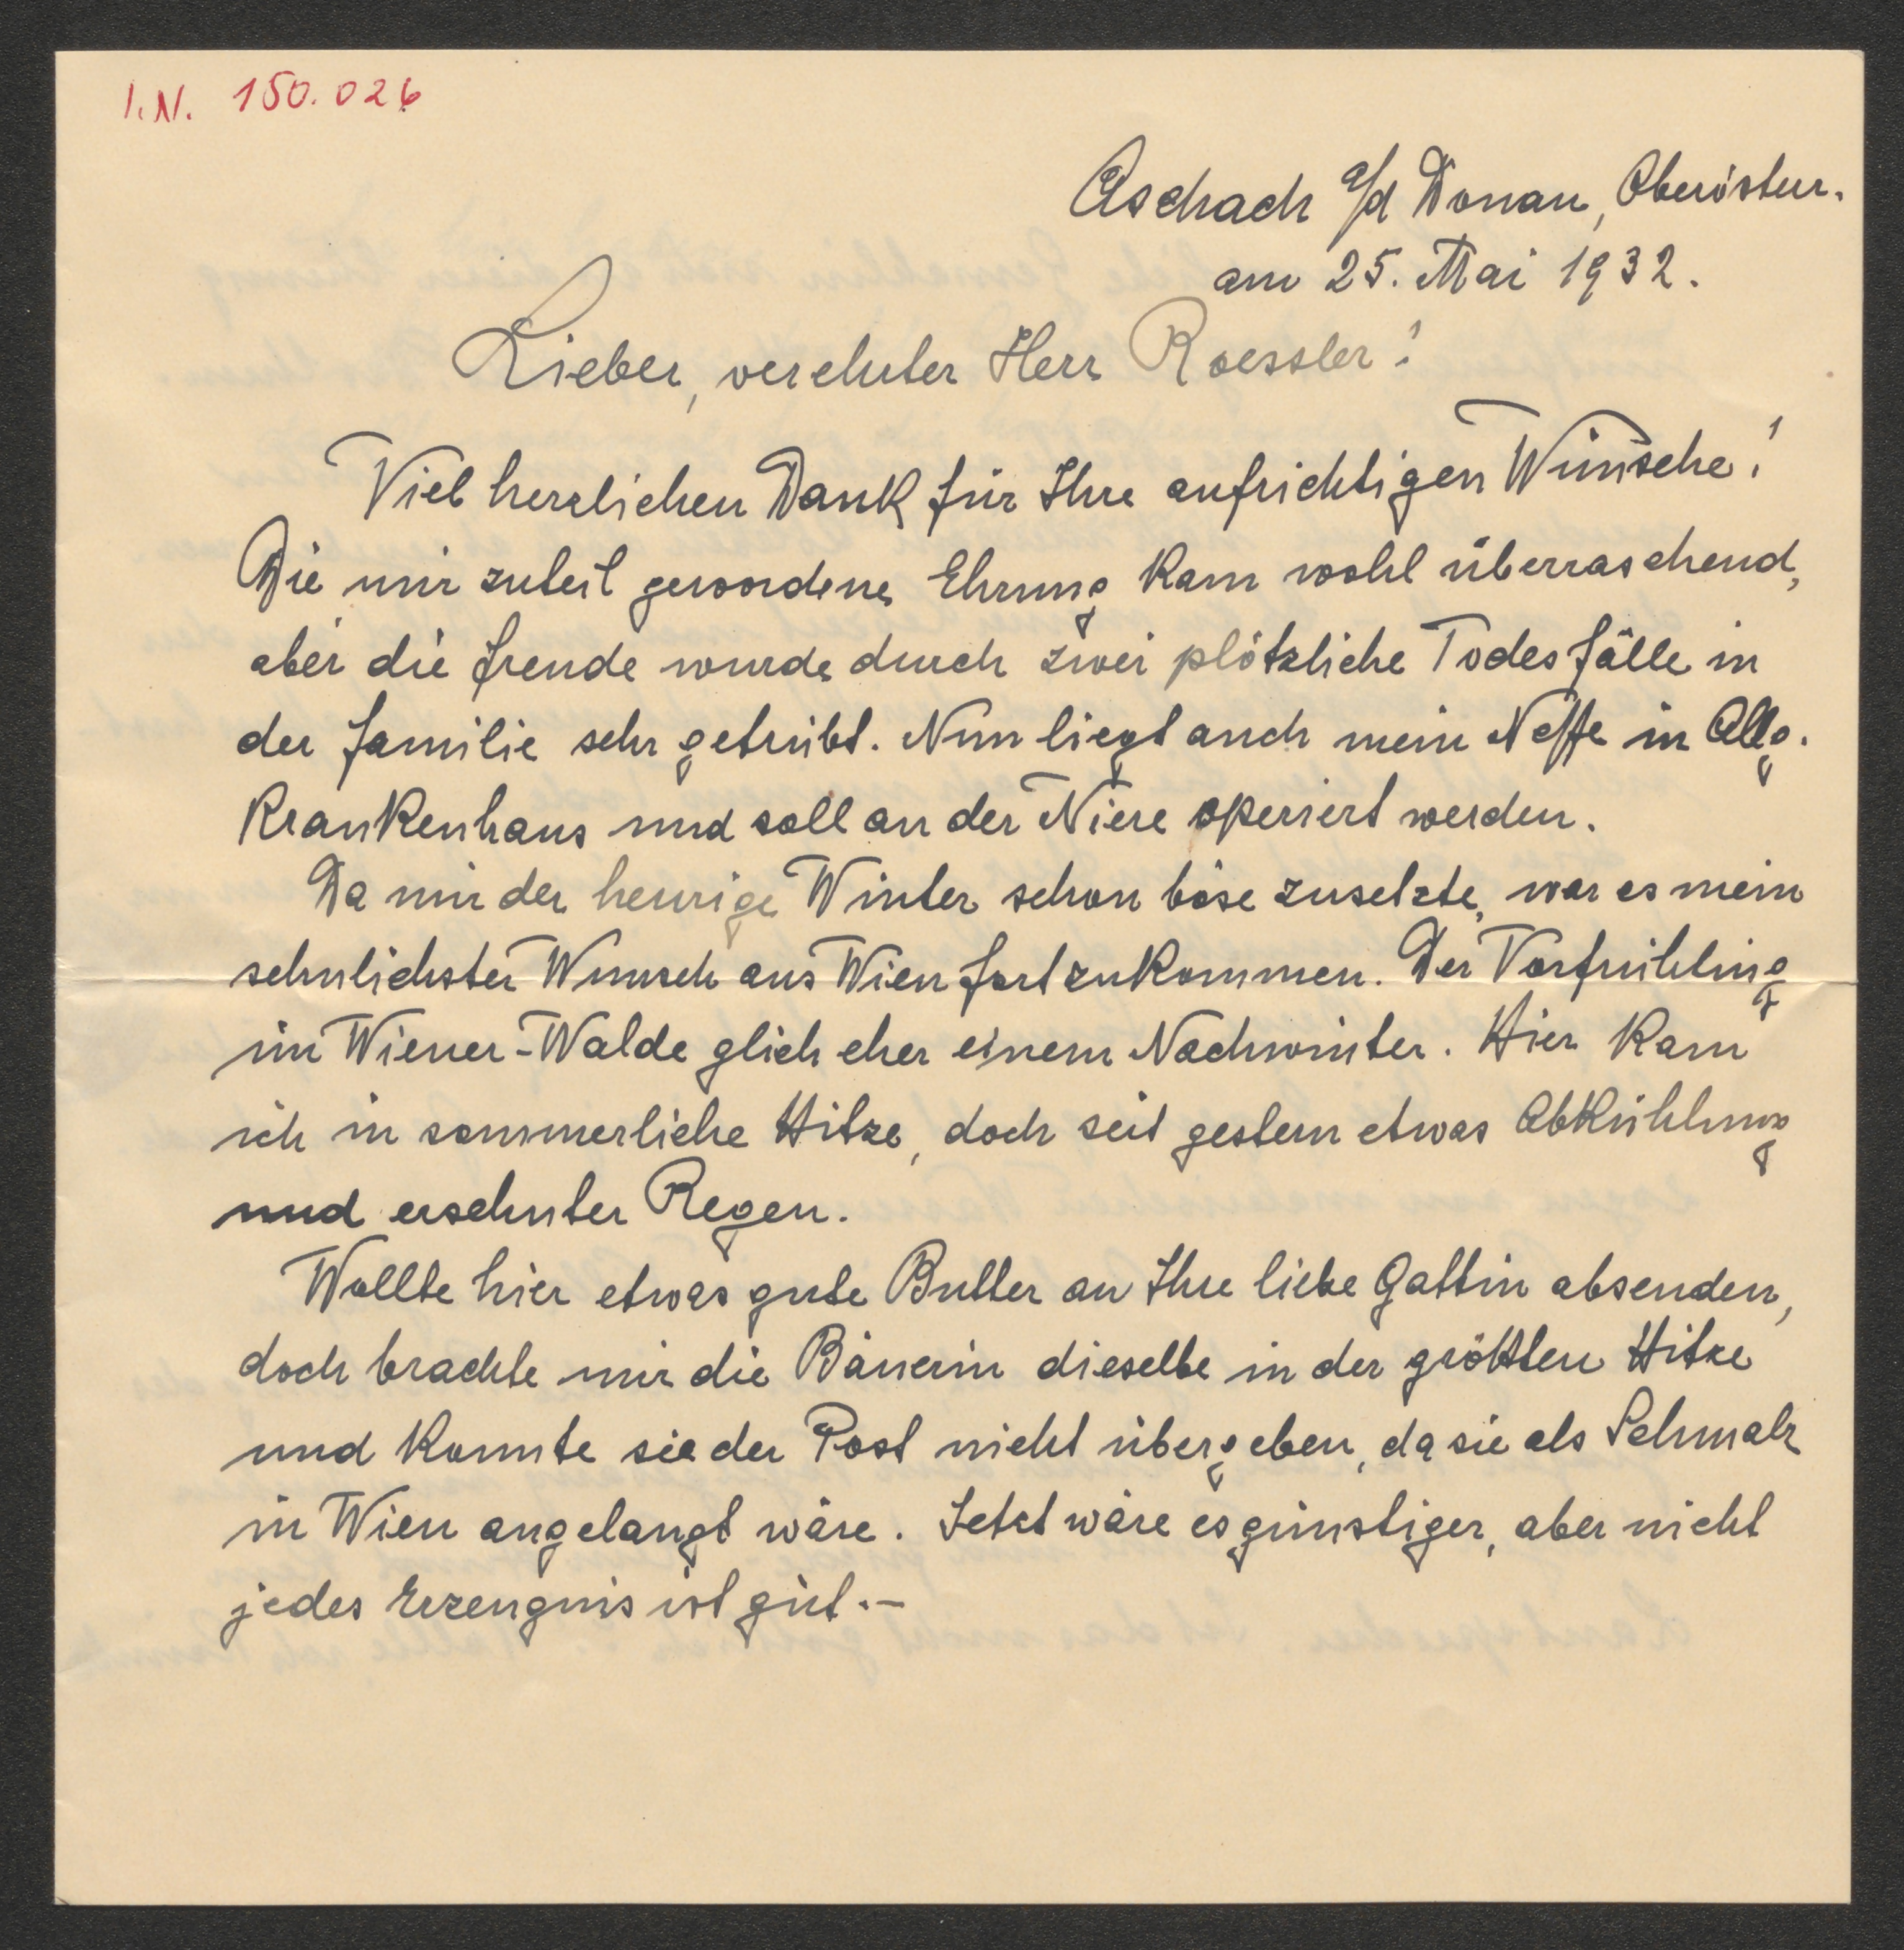 I.N. 150.026
Aschach a/d Donau, Oberöster.
am 25. Mai 1932.
Lieber, verehrter Herr Roessler!
Viel herzlichen Dank für Ihre aufrichtigen Wünsche!
Die mir zuteil gewordene Ehrung kam wohl überraschend,
aber die Freude wurde durch zwei plötzliche Todesfälle in
der Familie sehr getrübt. Nun liegt auch mein Neffe in Allg.
Krankenhaus und soll an der Niere operiert werden.
Da mir der heurige Winter schon böse zusetzte, war es mein
sehnlichster Wunsch aus Wien fortzukommen. Der Vorfrühling
im Wiener-Walde glich eher einem Nachwinter. Hier kam
ich in sommerliche Hitze, doch seit gestern etwas Abkühlung
und ersehnter Regen.
Wollte hier etwas gute Butter an Ihre liebe Gattin absenden,
doch brachte mir die Bäuerin dieselbe in der größten Hitze
und konnte sie der Post nicht übergeben, da sie als Schmalz
in Wien angelangt wäre. Jetzt wäre es günstiger, aber nicht
jedes Erzeugnis ist gut.-